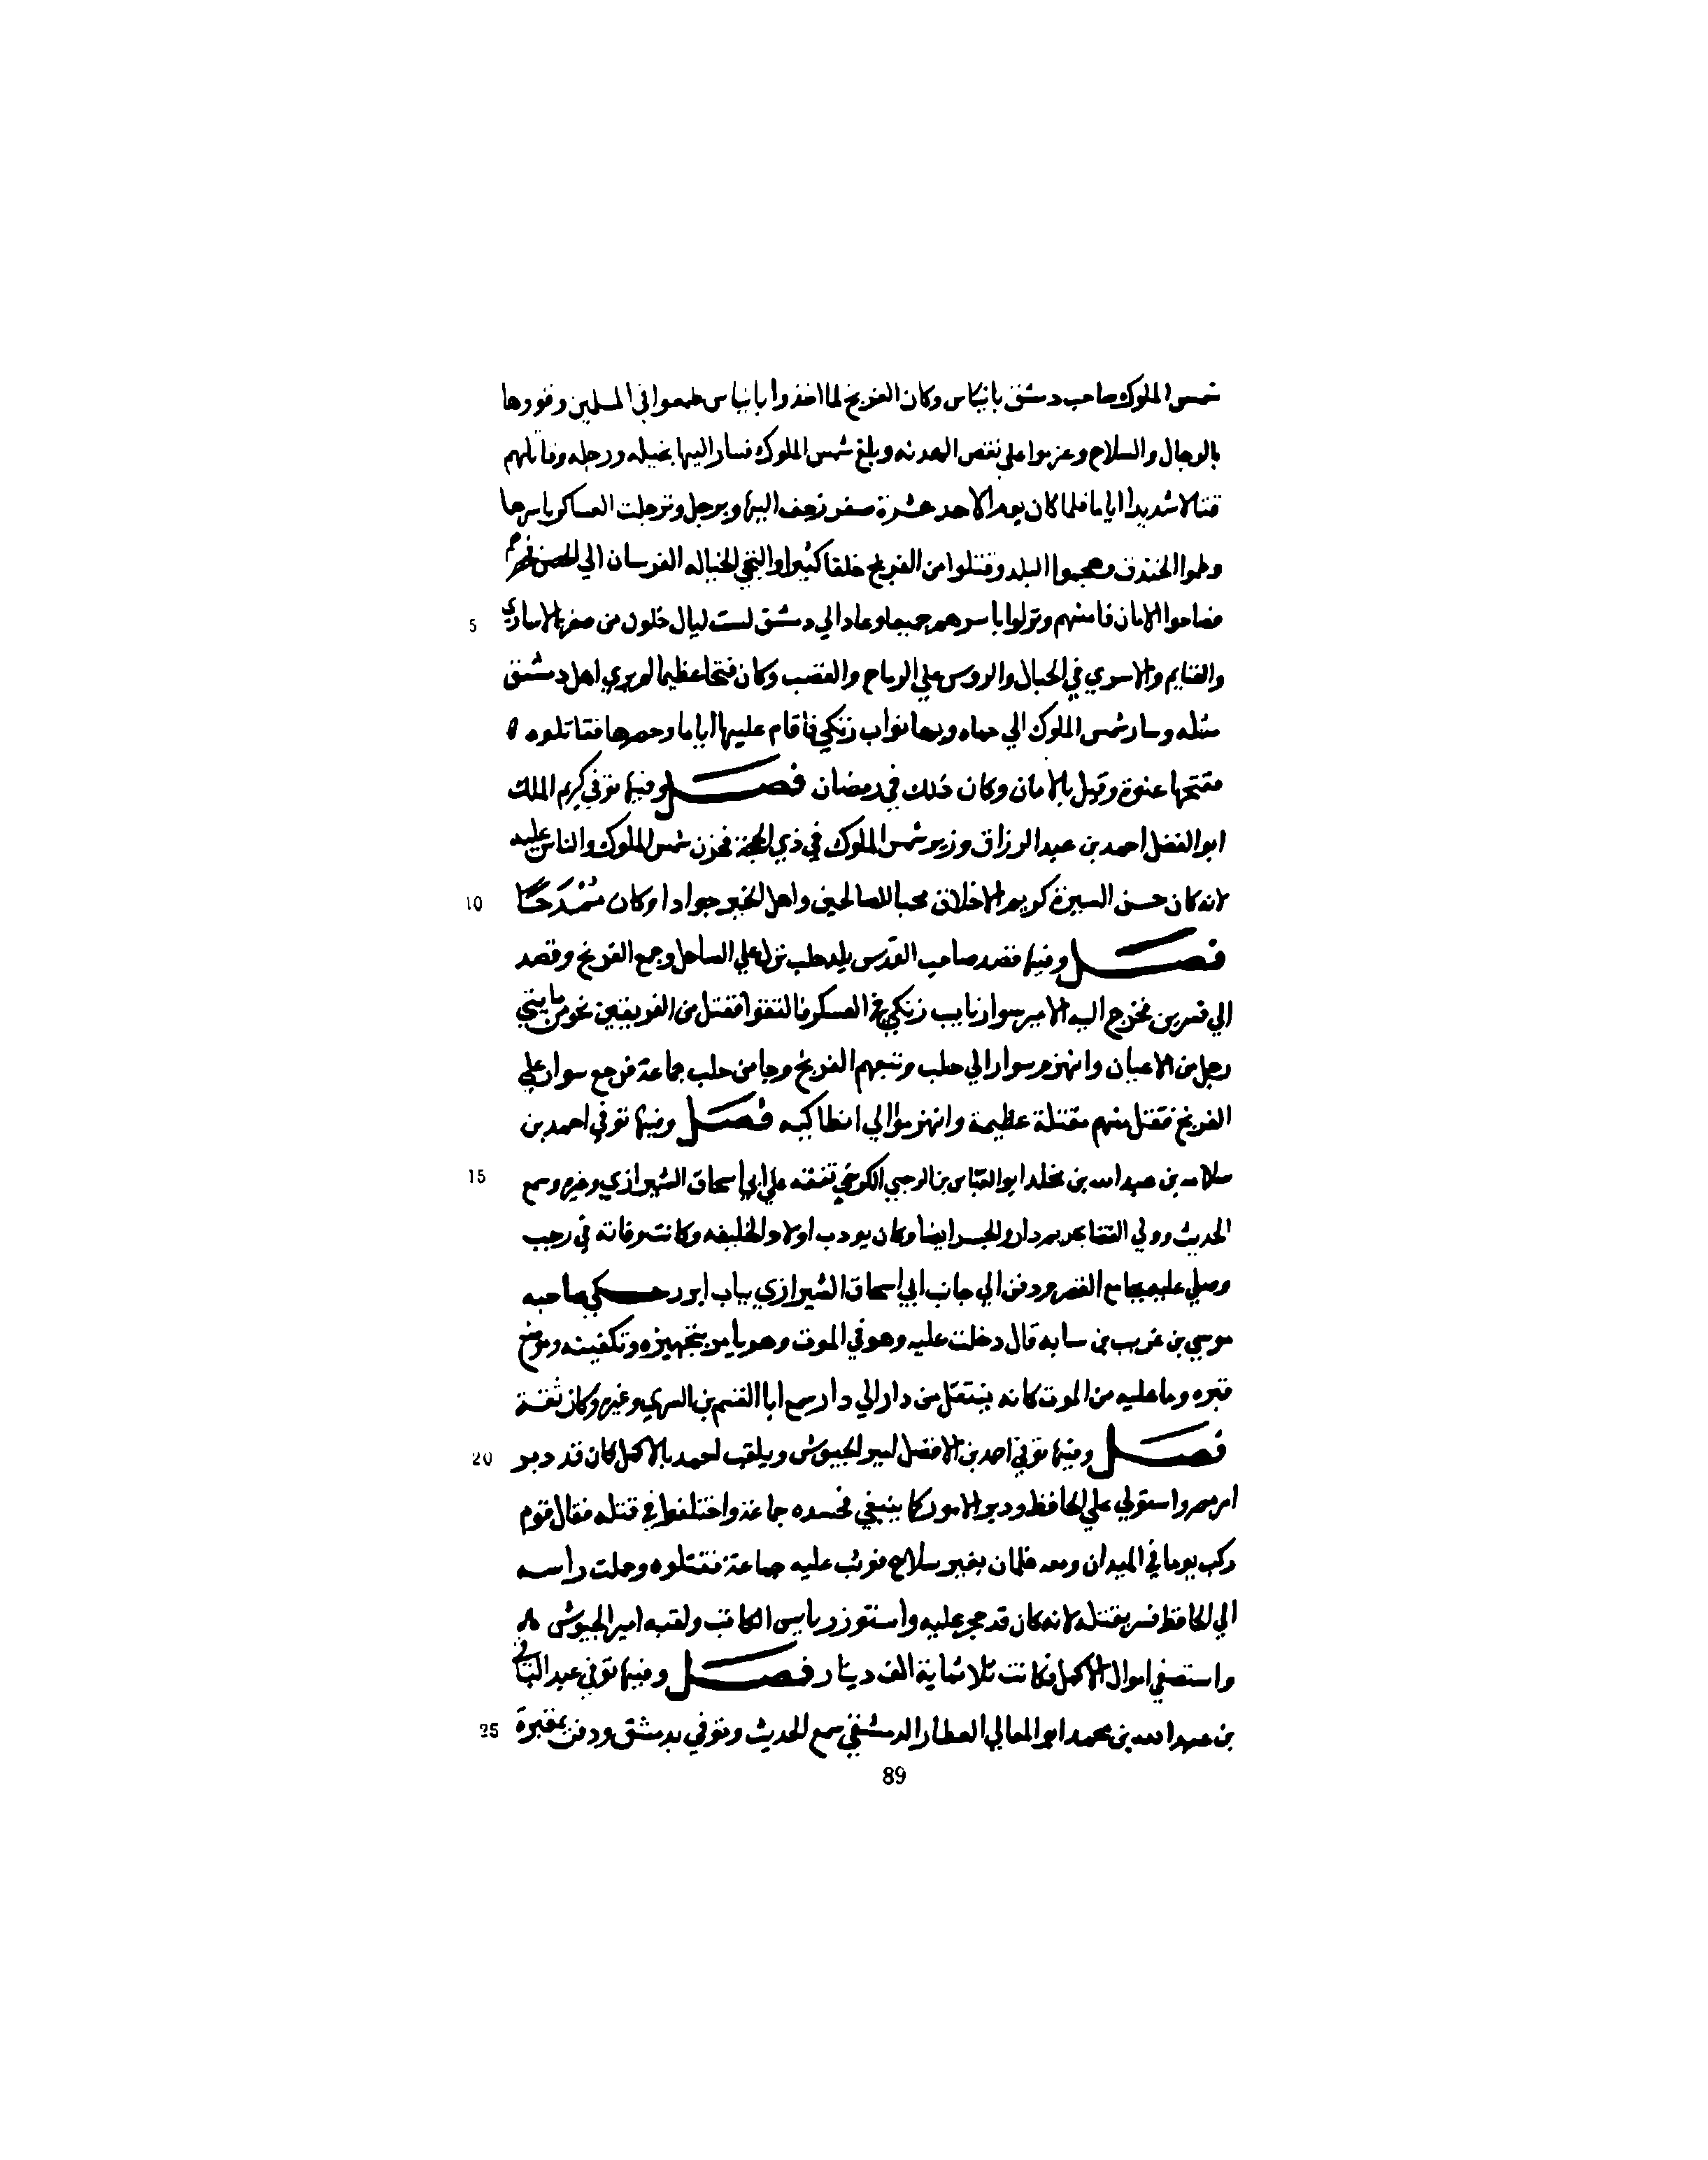 شمس الملوك صاحب دمشق بانياس وكان الفرنج لما اخذوا بانياس طمعوا في المسلمين وقووها
بالرجال والسلاح وعزموا علي نقض الهدنه وبلغ شمس الملوك فسار اليها بخيله ورجله وقاتلهم
قتالا شديدا اياما فلما كان يوم الاحد عشرة صفر زحف اليها وترجل وترجلت العساكر باسرها
وطموا الخندق وهجموا البلد وقتلوا من الفرنج خلقا كثيرا والتجي الخياله الفرسان الي الحصن
فصاحوا الامان فامنهم ونزلوا باسرهم جميعا وعاد الي دمشق لست ليال خلون من صفر بالاساري 5
والغنايم والاسري في الحبال والروس علي الرماح والقصب وكان فتحا عظيما لم يري اهل دمشق
مثله وسار شمس الملوك الي حماه وبها نواب زنكي فاقام عليها اياما وحصرها فقاتلوه ٥
ففتحها عنوة وقيل بالامان وكان ذلك في رمضان فصل وفيها توفي كريم الملك
ابو الفضل احمد بن عبد الرزاق وزير شمس الملوك في ذي الحجة فحزن شمس الملوك والناس عليه
لانه كان حسن السيرة كريم الاخلاق محبا للصالحين واهل الخير جوادا وكان مُمَدَحًا 10
فصل وفيها قصد صاحب القدس بلد حلب نزل علي الساحل وجمع الفرنج وقصد
الي قنسرين فخرج اليه الامير سوار نايب زنكي في العسكر فالتقوا فقتل من الفريقين نحو من مايتي
رجل من الاعيان وانهزم سوار الي حلب وتبعهم الفرنج وجا من حلب جماعة فرجع سوار علي
الفرنج فقتل منهم مقتلة عظيمة وانهزموا الي انطاكيه فصل وفيها توفي احمد بن
سلامه بن عبد الله بن مخلد ابو العباس بن الرجبي الكرخي تفقه علي ابي اسحاق الشيرازي وغيره وسمع 15
الحديث وولي القضا بحريم دار والحسر ايضا وكان يودب اولاد الخليفه وكانت وفاته في رجب
وصلي عليه بجامع القصر ودفن الي جانب ابي اسحاق الشيرازي بباب ابرز حكي صاحبه
موسي بن غريب بن سابه قال دخلت عليه وهو في الموت وهو يامر بتجهيزه وتكفينه وموضع
قبره وما عليه من الموت كانه ينتقل من دار الي دار سمع ابا القسم بن البسري وغيره وكان ثقة
فصل وفيها توفي احمد بن الافضل امير الجيوش ويلقب احمد بالاكمل كان قد دبر 20
امر مصر واستولي علي الحافظ ودبر الامور كما ينبغي فحسده جماعة واختلفوا في قتله فقال قوم
ركب يوما في الميدان ومعه غلمان بغير سلاح فوثب عليه جماعة فقتلوه وحملت راسه
الي الحافظ فسر بقتله لانه كان قد حجر عليه واستوزر يانس الكاتب ولقبه امير الجيوش ٨
واستصفي اموال الاكمل فكانت ثلاثماية الف دينار فصل وفيها توفي عبد الباقي
بن عبد الله بن محمد ابو المعالي العطار الدمشقي سمع الحديث وتوفي بدمشق ودفن بمقبرة 25
89